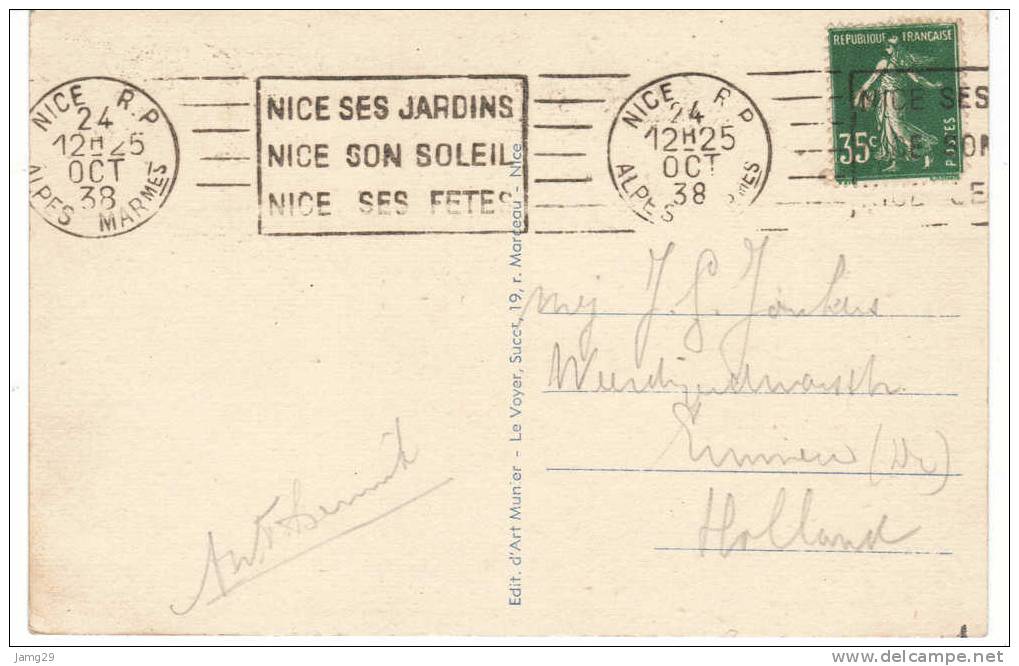 NICE R.P
24
12H25
OCT
38
ALPES MARMES
NICE SES JARDINS
NICE SON SOLEIL
NICE SES FETES
NICE R.P
24
12H25
OCT
38
ALPES MES
REPUBLIQUE FRANÇAISE
35c
POSTES
NICE SES
Edit. d'Art Munier - Le Voyer, Succr, 19, r. Marceau - Nice
Mej J. G. Jonkers
Emmen (Dr)
Holland
Jamg29
delcampe.net